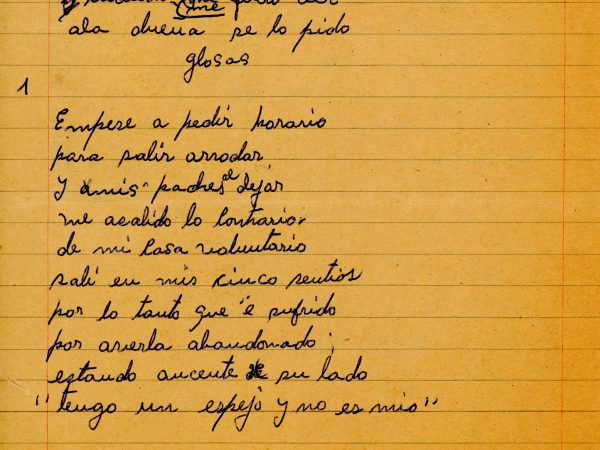 que
ala duena se lo pido
glosas
1
Empese a pedir horario
para salir arrodar
Y amis padres el dejar
me asalido lo contrario.
de mi casa voluntario
sali en mis cinco sentios
por lo tanto que e sufrido
por averla abandonado;
estando aucente de su lado
"tengo un espejo y no es mio"